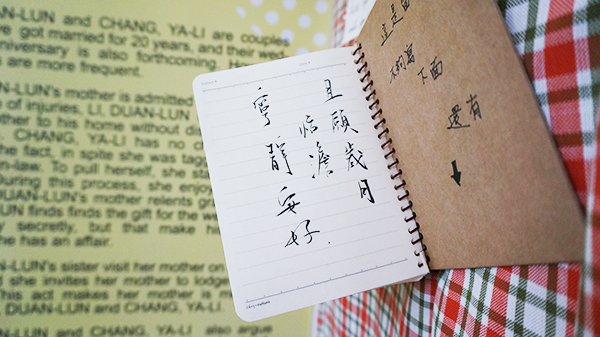 AN-LUN and CHANG, YA-LI are couples
got married for 20 years, and their
anniversary is also forthcoming.
are more frequent.
AN-LUN's mother is admitted
of injuries, LI, DUAN-LUN
mother to his home without
CHANG, YA-LI has no
the fact, in site she was
in-law. To pull herself, she
During this process, she enjoy
LUN's mother relents
LUN finds finds the gift for the
secretly, but that make
she has an affair.
AN-LUN's sister visit her mother on
she invites her mother to
This act makes her mother is
DUAN-LUN and CHANG, YA-LI
AN-LUN and CHANG, YA-LI also argue
且願歲月
恬澹
寧靜安好.
這是
不夠寫
下面
還有